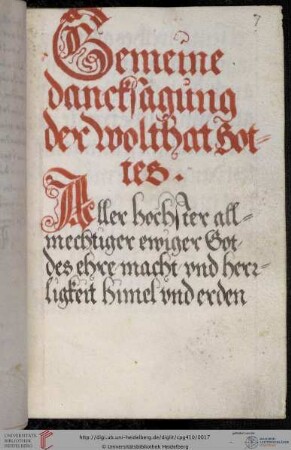 7
Gemeine
dancksagung
der wolthat Got-
tes.
Aller hochster all-
mechtiger ewiger Got
des ehre macht vnd herr-
ligkeit himel vnd erden
http://digi.ub.uni-heidelberg.de/diglit/cpg419/0017
© Universitätsbibliothek Heidelberg
UNIVERSITÄTS-
BIBLIOTHEK
HEIDELBERG